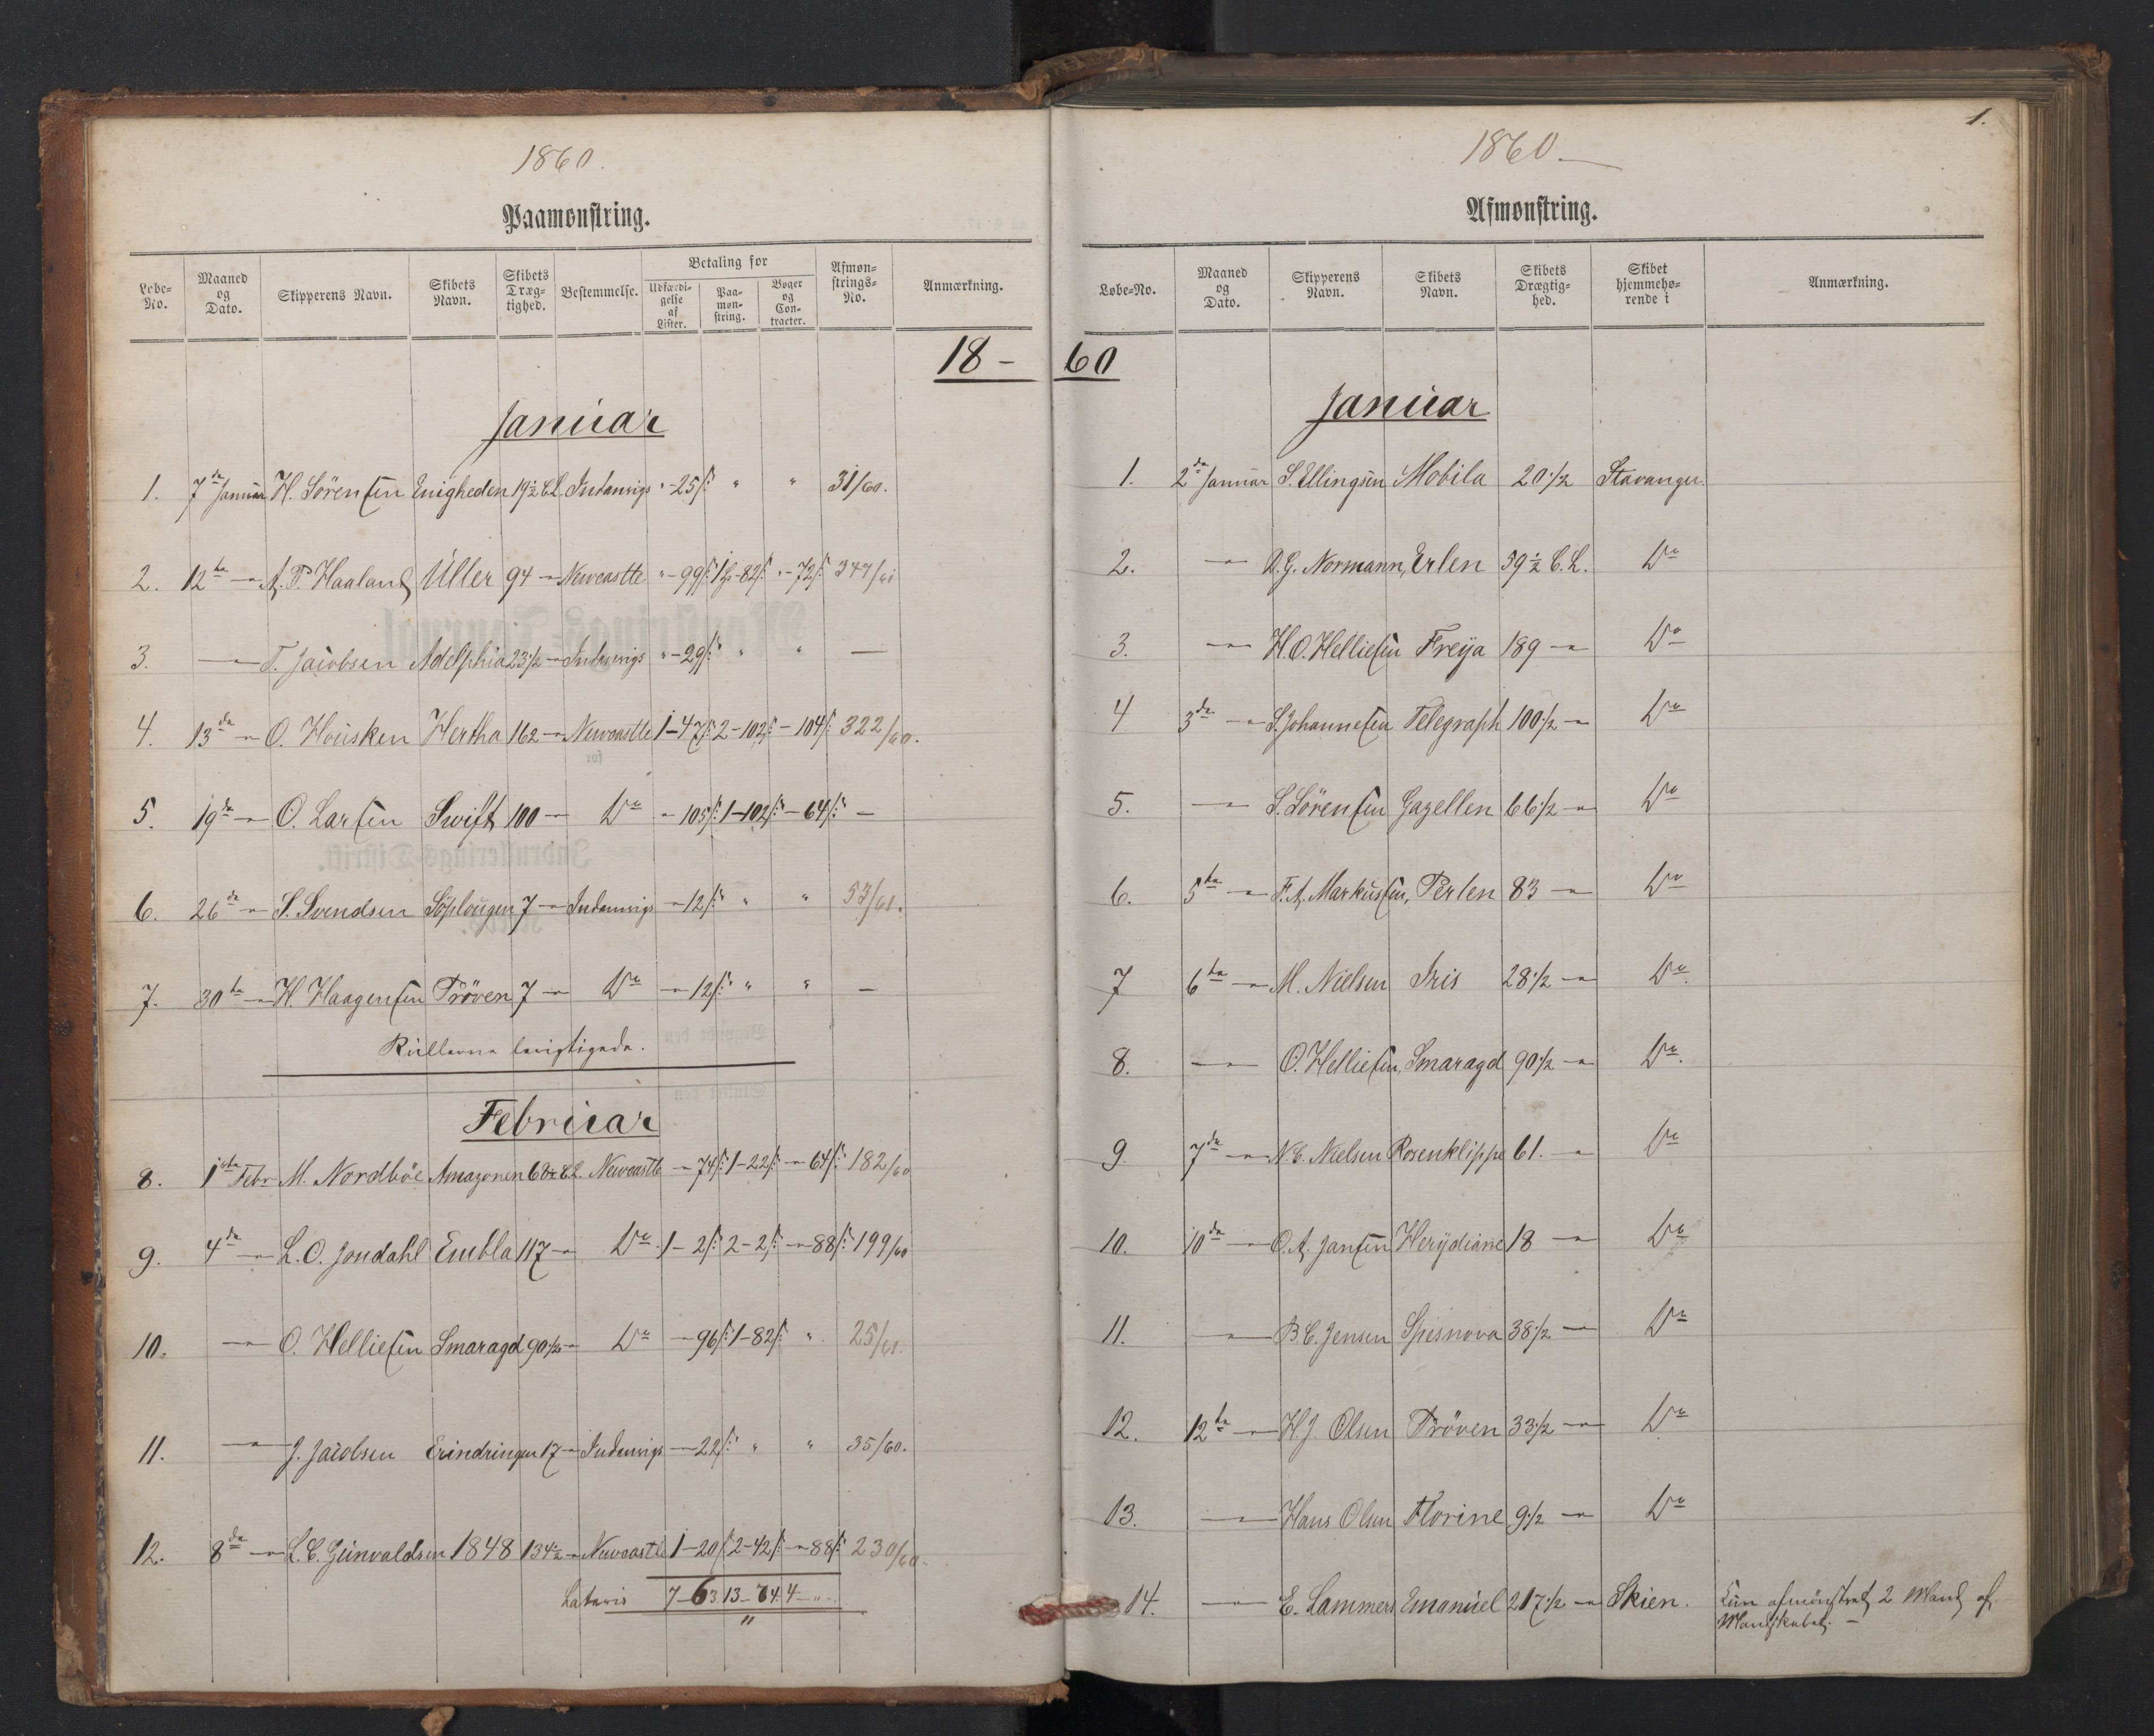 1860.
Paamønstring.
Løbe-No. Maaned og Dato. Skipperens Navn. Skibets Navn. Skibets Drægtighed. Bestemmelse. Betaling for Udfærdigelse af Lister. Paamønstring. Bøger og Contracter. Afmønstrings-No. Anmærkning.
18-
Januar
1. 7de Januar H. Sörensen Enigheden 19½ C.L. Indenrigs " - 25 ß " " 31/60.
2. 12te - A. P. Haaland Uller 94 - Newcastle " - 99 ß 1 - 82 ß " - 72 ß 347/61
3. - T. Jacobsen Adelphia 23½ - Indenrigs " - 29 ß " " -
4. 13de - O. Housken Hertha 162 - Newcastle 1 - 47 ß 2 - 102 ß - 104 ß 322/60.
5. 19de - O. Larsen Swift 100 - Do - 105 ß 1 - 102 ß - 64 ß -
6. 26de - S. Svendsen Söplougen 7 - Indenrigs - 12 ß " " 53/61.
7. 30te - H. Haagensen Pröven 7 - Do - 12 ß " " -
Rullerne berigtigede.
Februar
8. 1ste Febr M. Nordböe Amazonen 68½ C.L. Newcastle - 74 ß 1 - 22 ß - 64 ß 182/60
9. 4de - L. O. Jondahl Embla 117 - Do 1 - 2 ß 2 - 2 ß - 88 ß 199/60
10. - O. Helliesen Smaragd 90½ - Do - 96 ß 1 - 82 ß " 25/61.
11. - J. Jacobsen Erindringen 17 - Indenrigs - 22 ß " " 35/60.
12. 8de - L. C. Gunvaldsen 1848 134½ - Newcastle 1 - 20 ß 2 - 42 ß - 88 ß 230/60.
Lateris 7 - 63 13 - 64 4 - "
1.
1860
Afmønstring.
Løbe-No. Maaned og Dato. Skipperens Navn. Skibets Navn. Skibets Drægtighed. Skibet hjemmehørende i Anmærkning.
60
Januar
1. 2de Januar S. Ellingsen Mobila 20½ Stavanger.
2. - A. G. Normann, Erlen 59½ C.L. Do
3. - H. O. Helliesen Freya 189 - Do
4 3de - S. Johannesen Telegraph 100½ - Do
5. - S. Sörensen Gazellen 66½ - Do
6. 5te - F. A. Markussen, Perlen 83 - Do
7 6te - M. Nielsen Iris 28½ - Do.
8. - O. Helliesen, Smaragd 90½ - Do.
9. 7de - N. C. Nielsen Rosenklippe 61. - Do
10. 10de - O. A. Jansen Herÿdiane 18 - Do
11. - B. C. Jensen Spesnova 38½ - Do
12. 12te - H. J. Olsen Pröven 33½ - Do
13. - Hans Olsen Florine 9½ - Do
14. - E. Lammers Emanuel 217½ - Skien. Kun afmönstret 2 Mand af
Mandskabet. -